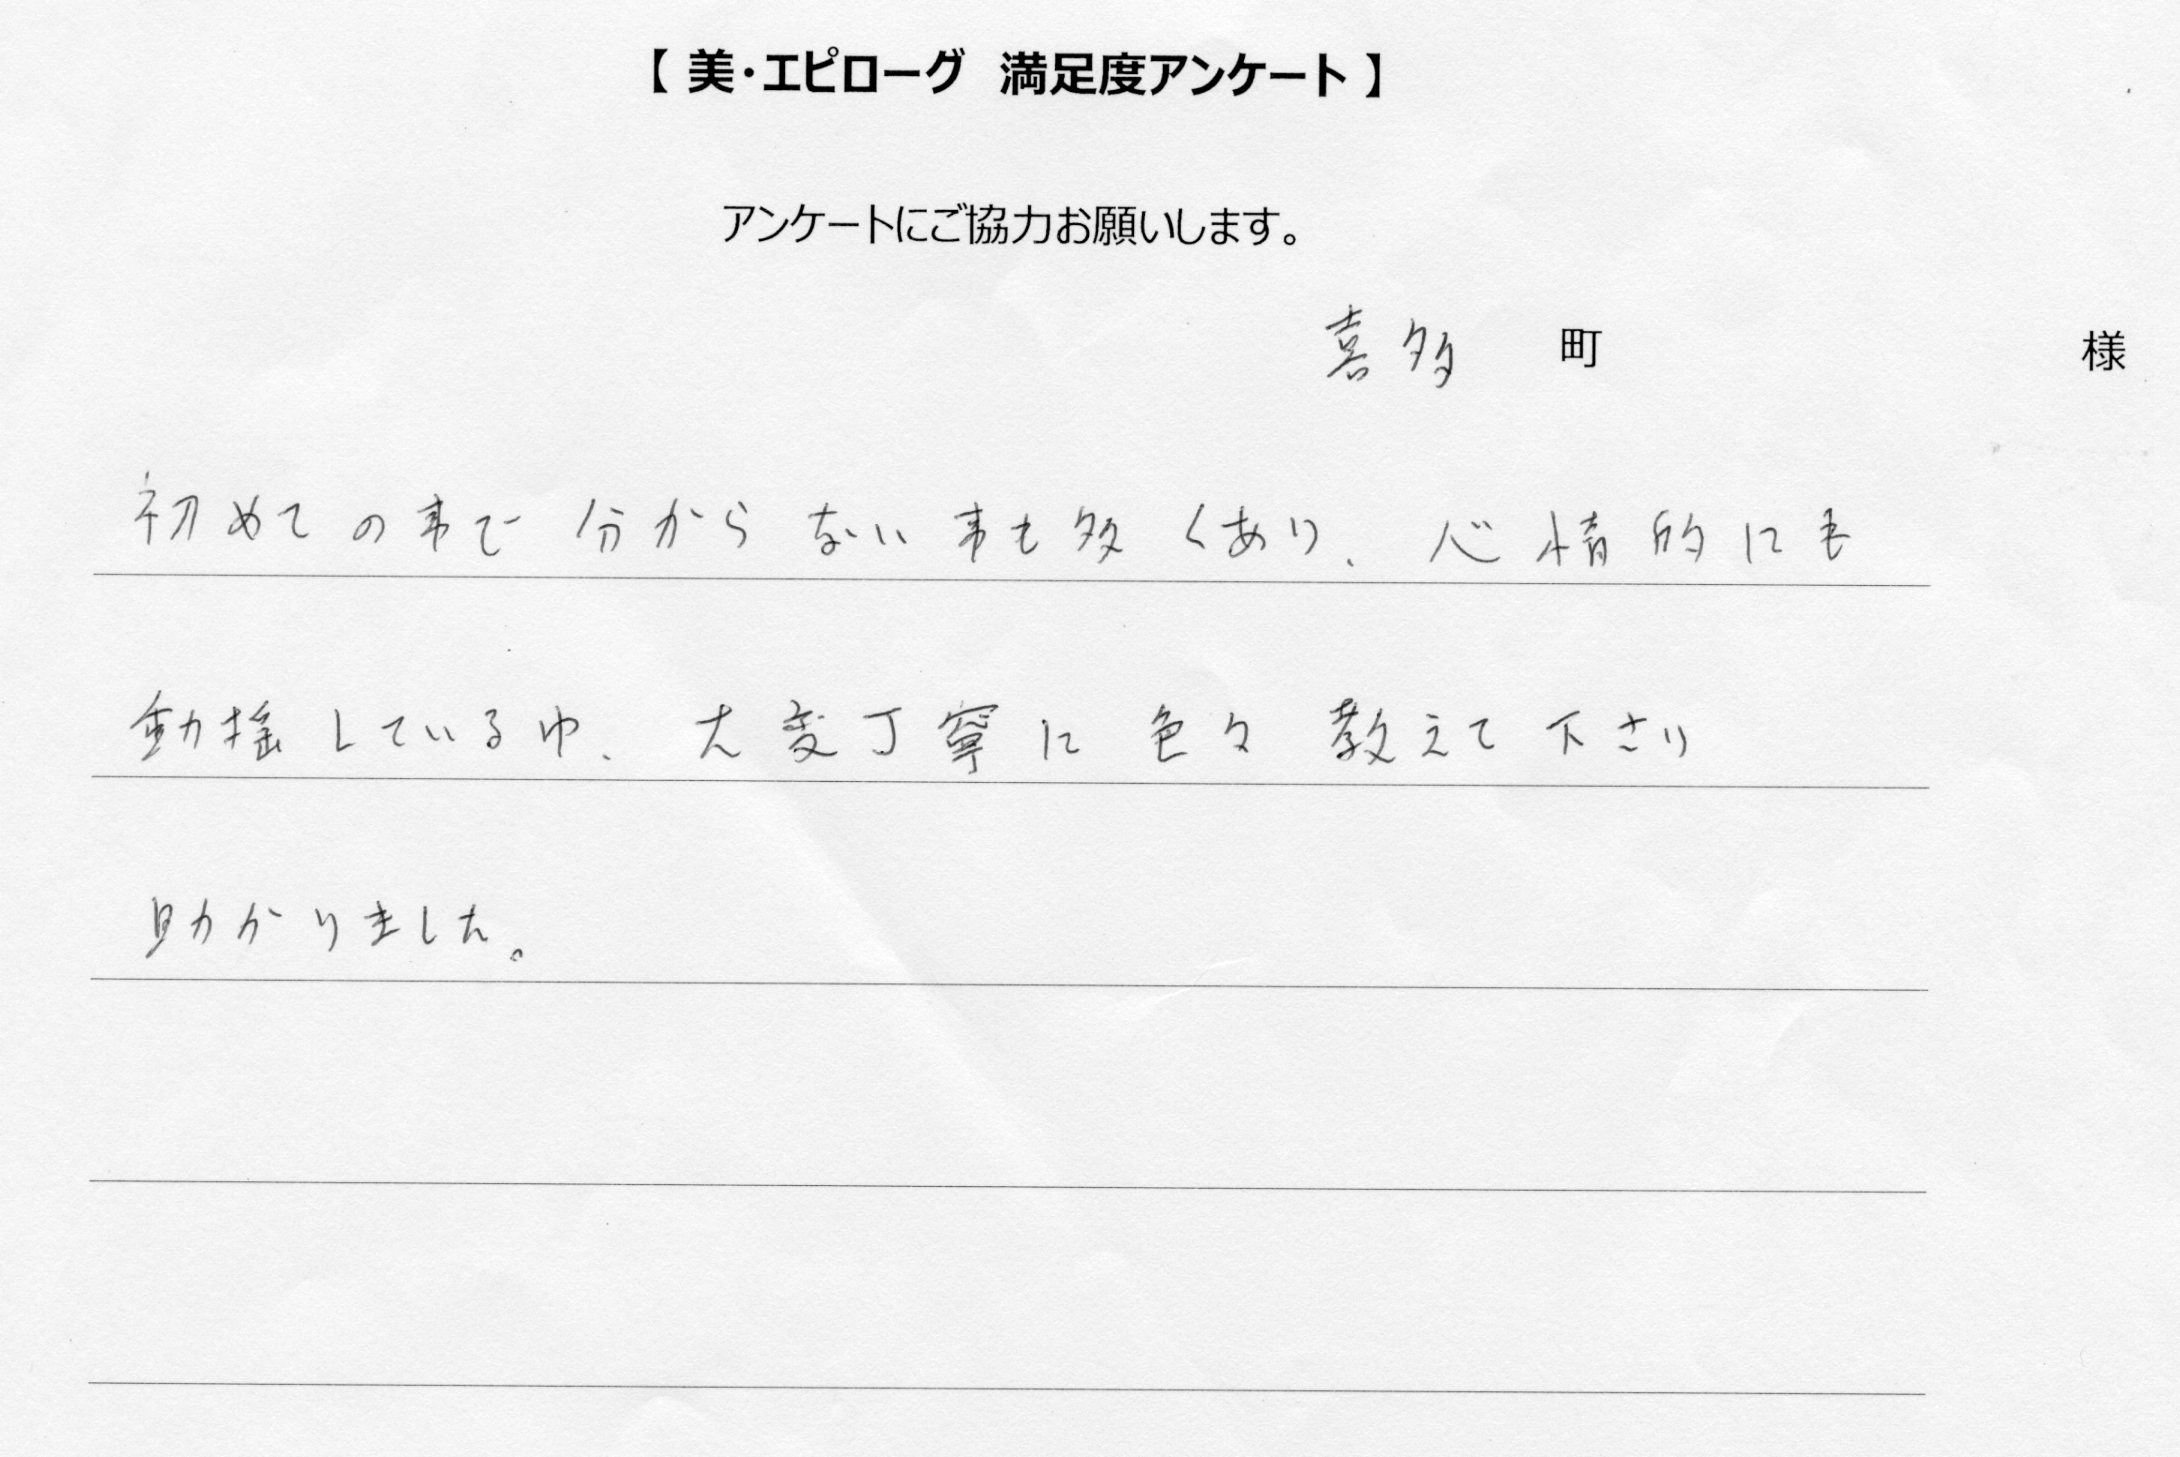 【 美・エピローグ　満足度アンケート 】
アンケートにご協力お願いします。
喜多　町　様
初めての事で分からない事も多くあり、心情的にも
動揺している中、大変丁寧に色々教えて下さり
助かりました。